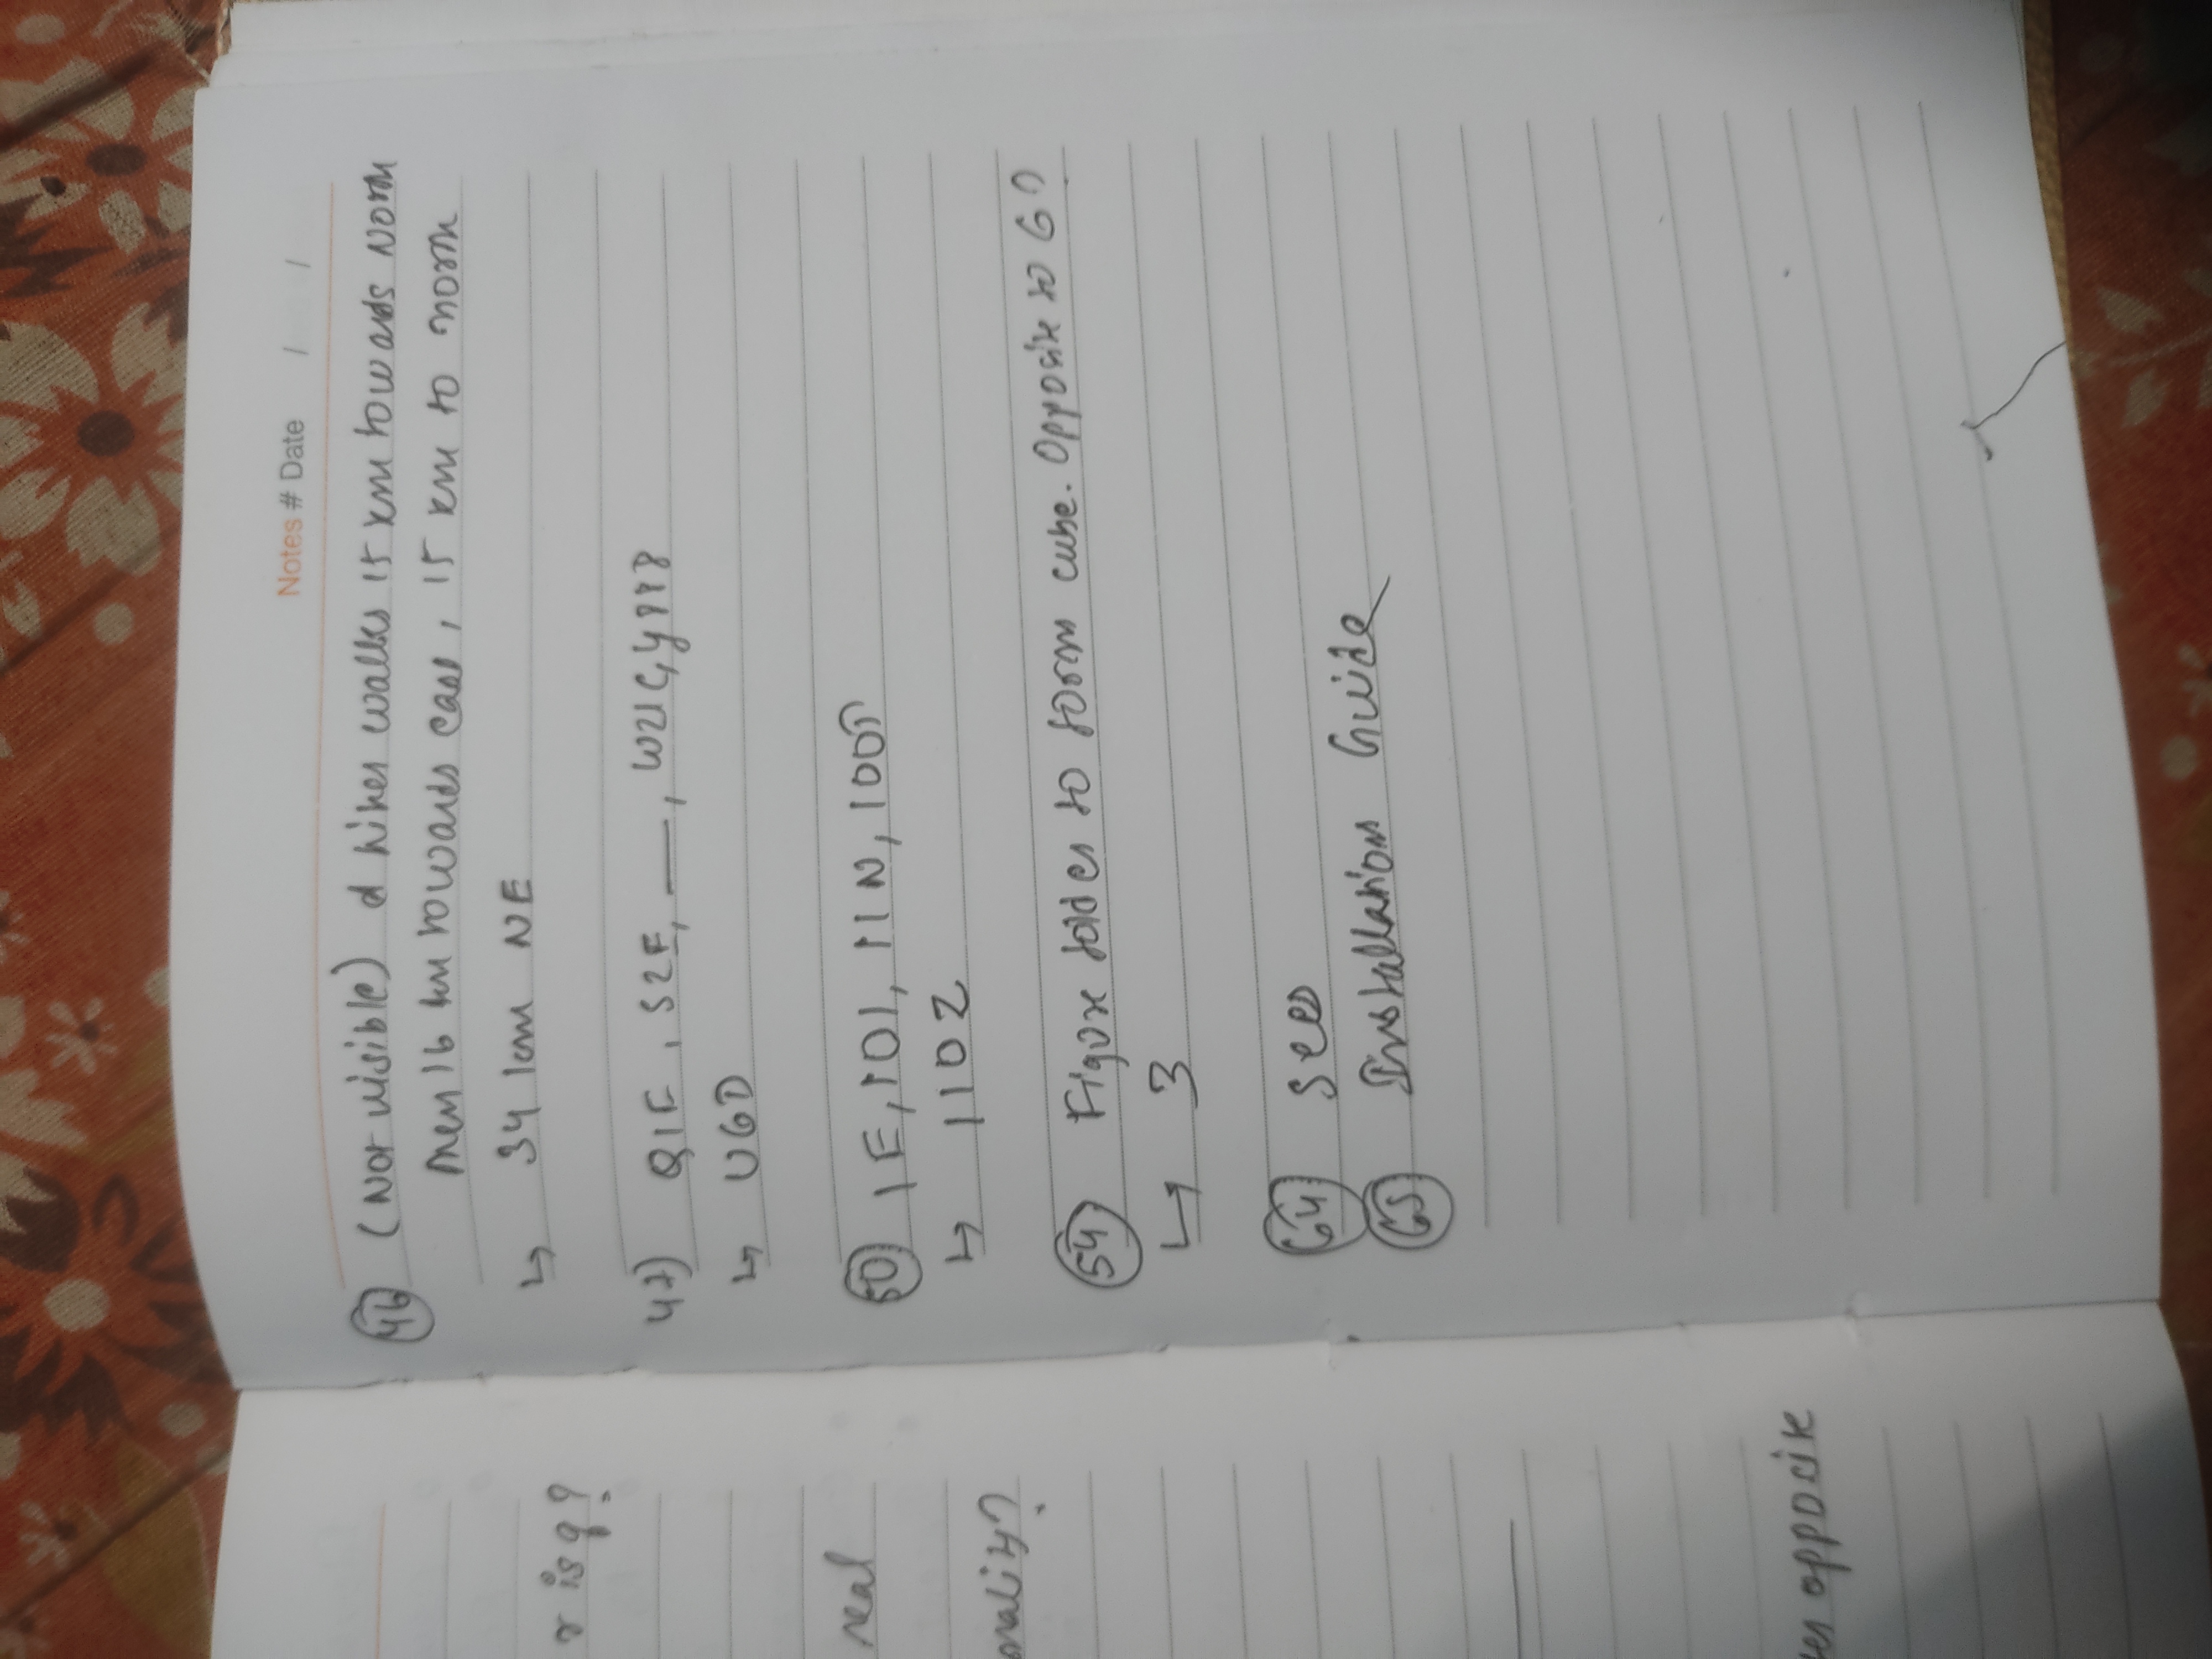 r is q?
real
onality?
opposite
Notes # Date / /
46 (Not visible) A hiker walks 15 km towards North
then 16 km towards east, 15 km to north
↳ 34 km NE
47) Q1F, S2E, __, W21C, Y88B
↳ U6D
50 1E, 10I, 11N, 100
↳ 110Z
54 Figure folded to form cube. Opposite to 6?
↳ 3
64 seed
65 Installation Guide